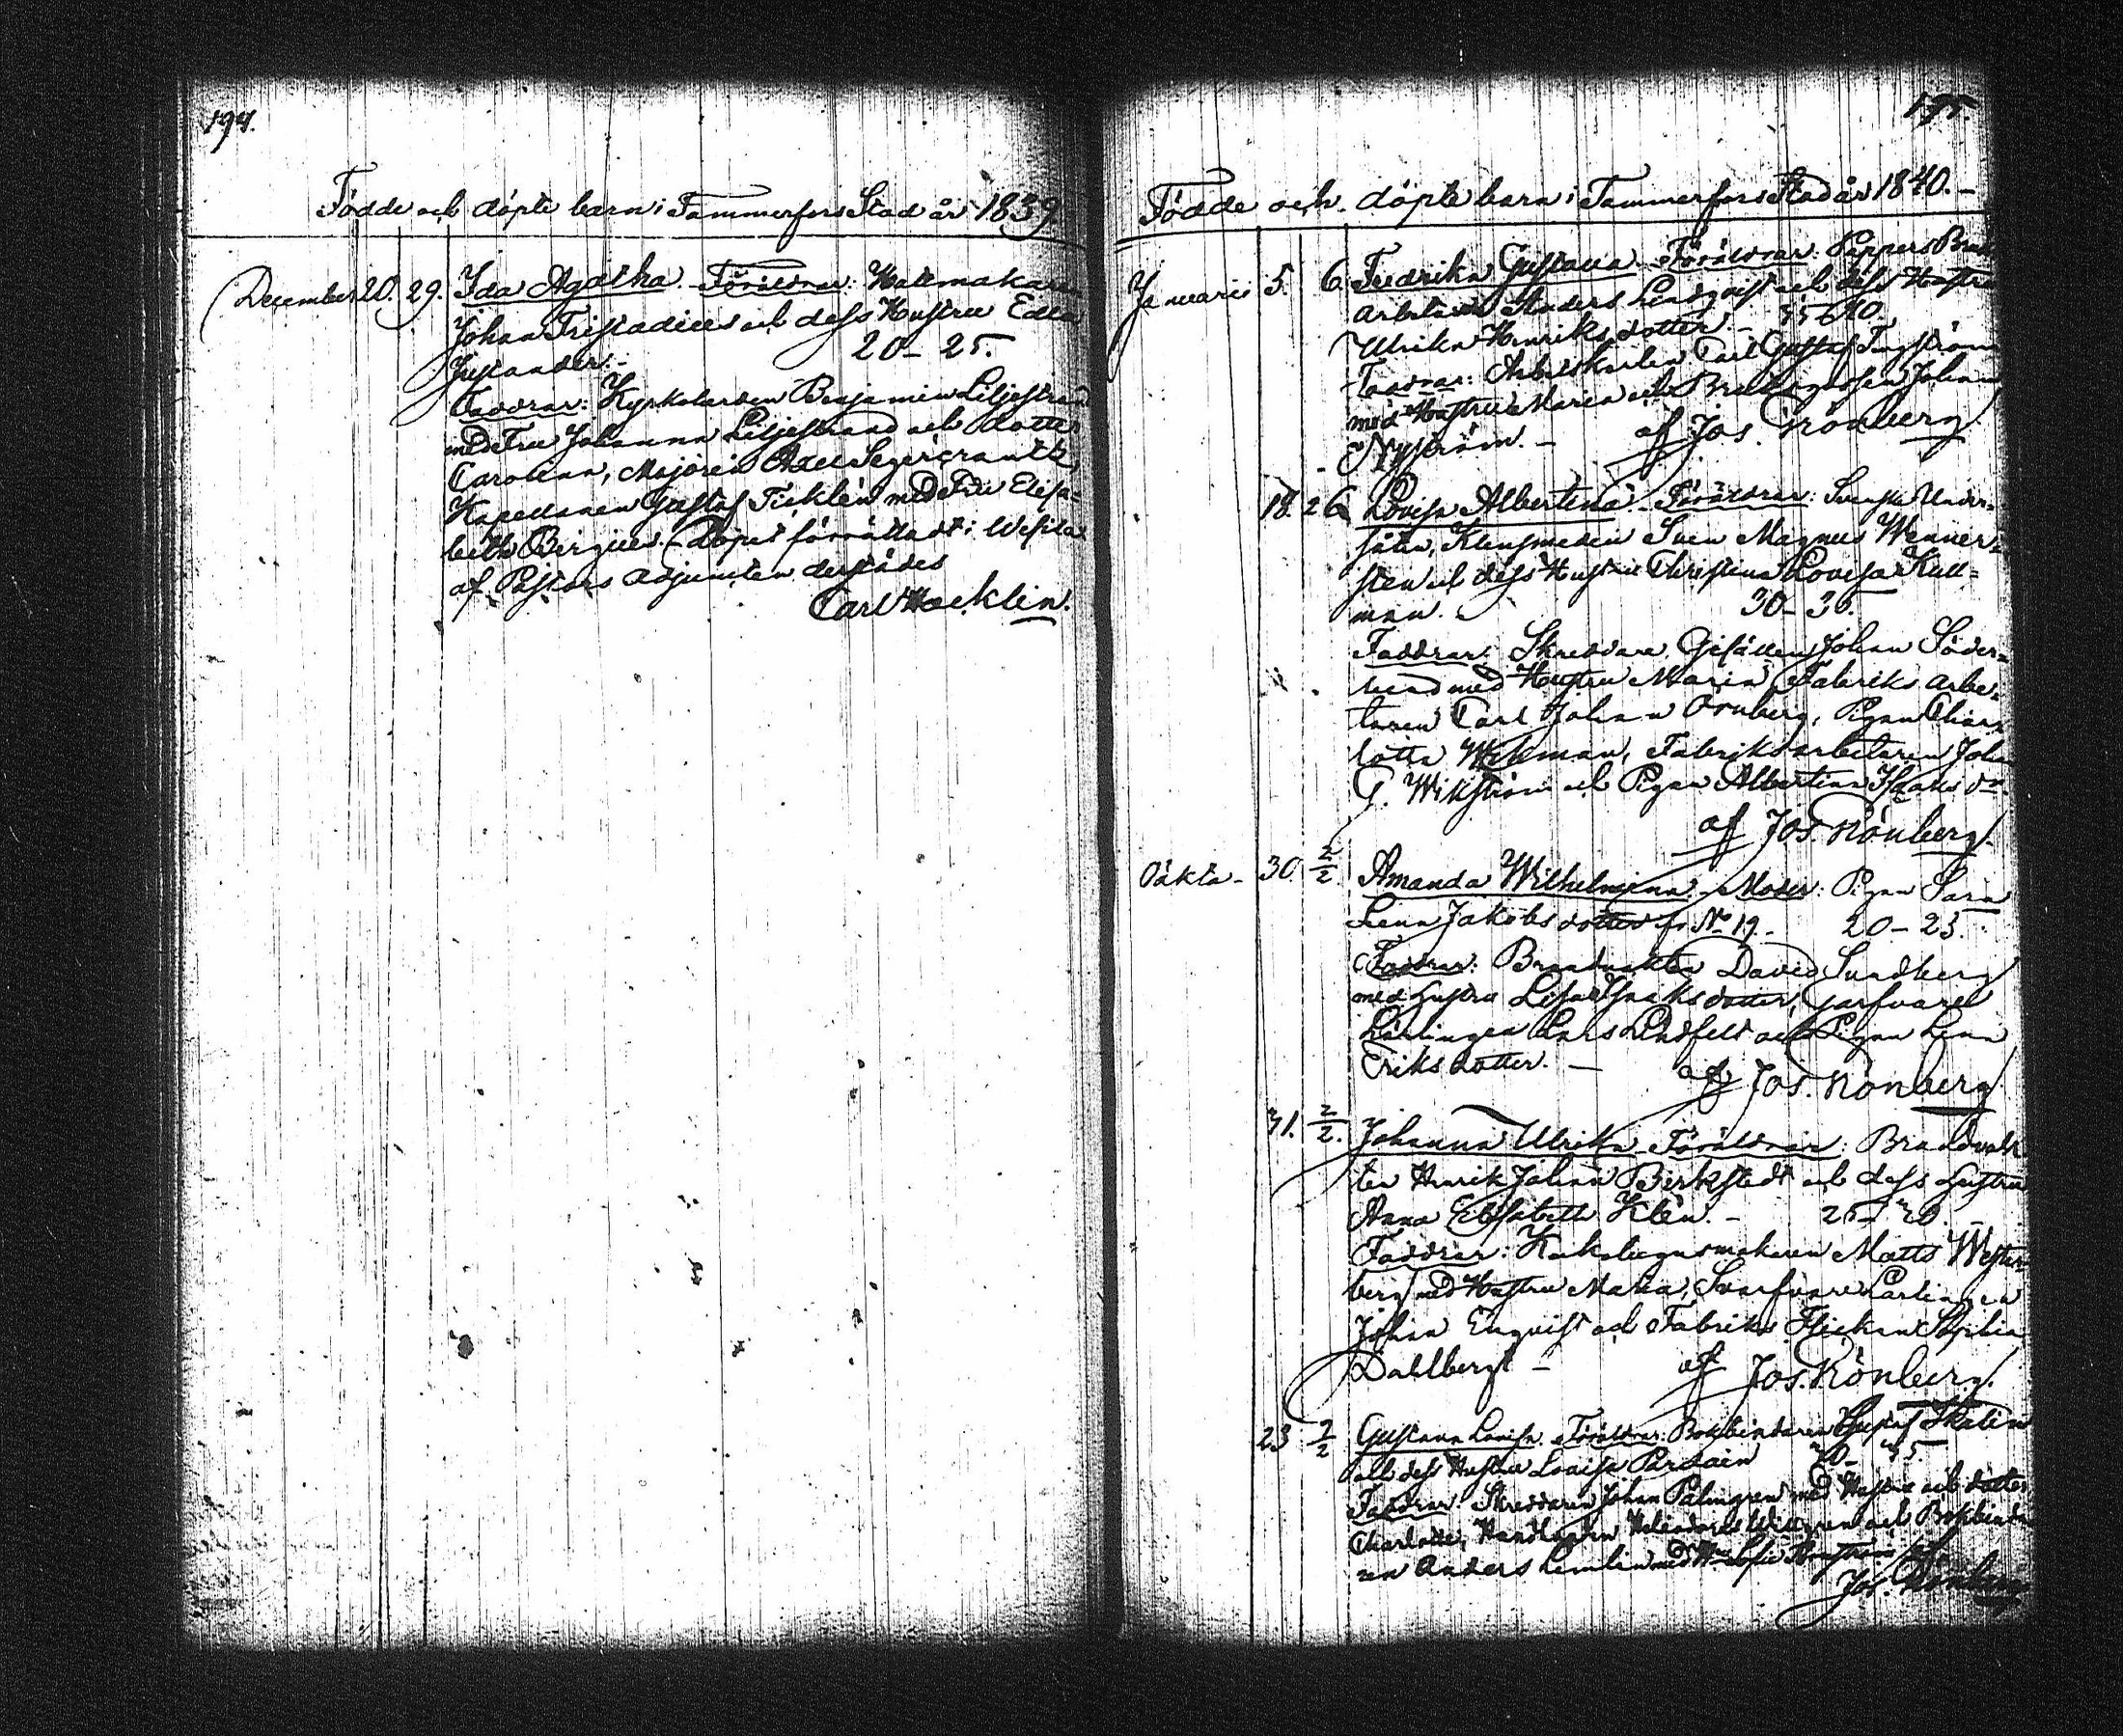 194.
Födde och döpte barn i Tammerfors Stad år 1839.
December 20. 29. Ida Agatha. Föräldrar: Hattmakare
Johan Tristadius och dess Hustru Edla
Justander. - 20 - 25.
Faddrar: Kyrkoherden Benjamin Liljestrand
med Fru Johanna Liljestrand och dotter
Carolina, Majoren Axel Segercrantz
Kapellanen Gustaf Ticklén med Fru Elisa=
beth Bergius. Döpet förrättadt i
af Pastors Adjuncten derstädes
Carl Hæcklin.
195.
Födde och döpte barn i Tammerfors Stad år 1840. -
Januarii 5. 6. Fredrika Gustava. Föräldrar: Pappers Bruks
Arbetaren Anders Lindqvist och dess Hustru
Ulrika Henriksdotter. - 35 - 40.
Faddrar: Arbetskarlen Carl Gustaf
med Hustru Maria och Johan
E Nyström. - af Jos. Rönberg
18. 26 Lovisa Albertina. Föräldrar: Svenske Under=
såten, Klensmeden Sven Magnus Wenner=
sten och dess Hustru Christina Lovisa Kull=
man. - 30 - 35.
Faddrar: Skreddare Gesällen Johan Söder=
lund med Hustru Maria, Fabriks arbe=
taren Carl Johan Ornberg, Pigan Char=
lotta Wikman, Fabriksarbetaren Joh
G. Wikström och Pigan Albertina Isaks dr
af Jos. Rönberg.
Oäkta - 30. 2/2 Amanda Wilhelmina. Moder: Pigan Sara
Lena Jakobsdotter fr No 19. - 20 - 23.
Faddrar: Brandvakten David Sundberg
med Hustru Lisa Isaksdotter, Garfvare
Lärlingen Lars Lindfelt och Pigan Lena
Eriksdotter. - af Jos. Rönberg
31. 2/2. Johanna Ulrika. Föräldrar: Brandvak
ten Henrik Johan Birkstedt och dess Hustru
Anna Elisabeth Klén. -
Faddrar: Kakelugnsmakaren Matts Wester
berg med Hustru Maria, Svarfvare Lärlingen
Johan Enqvist och Fabriks Flickan Sophia
Dahlberg. - af Jos. Rönberg.
23 2/2 Gustava Lovisa. Föräldrar: Bokbindaren Gustaf
och dess Hustru Lovisa
Faddrar: Skreddaren Johan Palmgren med Hustru och dotter
Charlotte, Handlanden och Bokbinda
ren Anders med
Jos. Rönberg